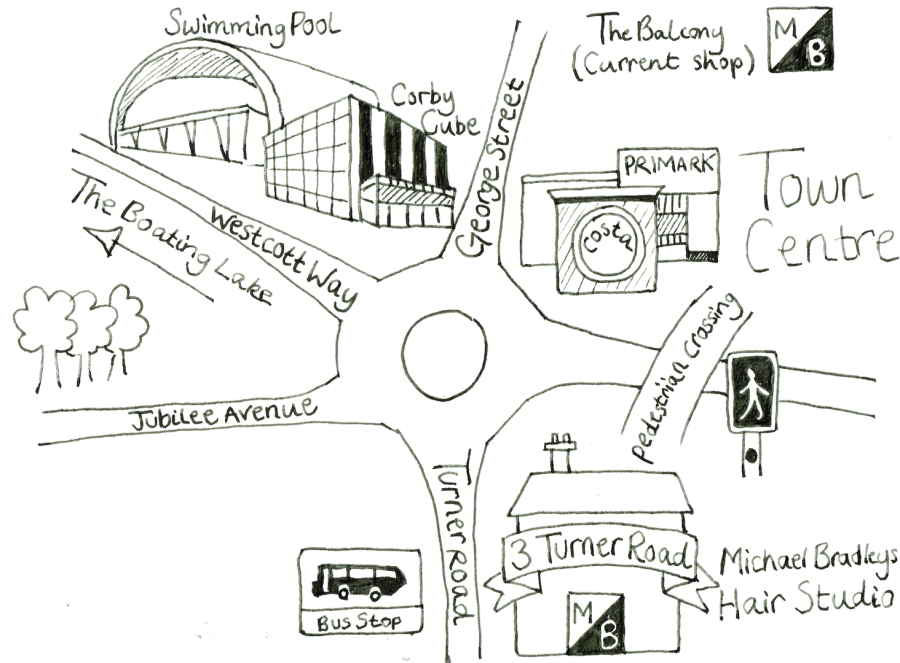 Swimming Pool
The Balcony
(Current shop)
M
B
Corby
Cube
George Street
PRIMARK
Town
Centre
costa
The Boating Lake
Westcott Way
pedestrian crossing
Jubilee Avenue
Turner Road
3 Turner Road
Michael Bradleys
Hair Studio
Bus Stop
M
B